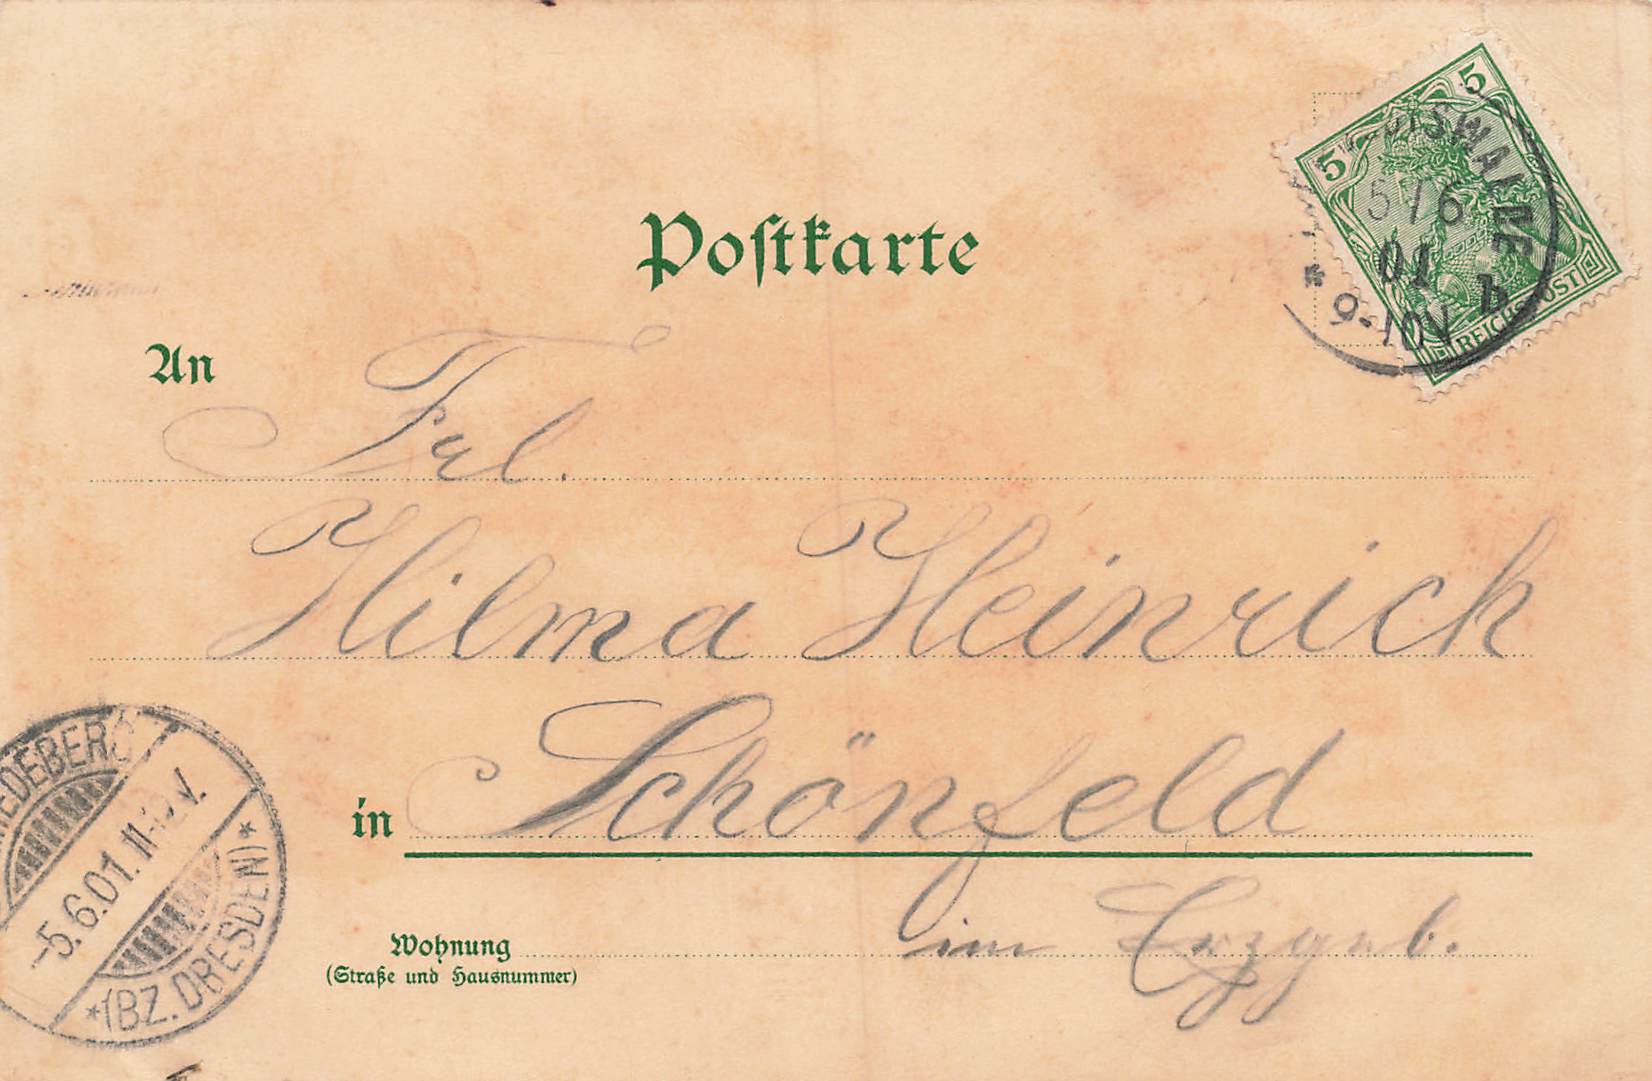 Postkarte
5
5
5/6
01
9-10V
b
REICHSPOST
An
Frl.
Hilma Heinrich
in Schönfeld
im Erzgeb.
Wohnung
(Straße und Hausnummer)
-5.6.01.11-12V.
*(BZ. DRESDEN)*